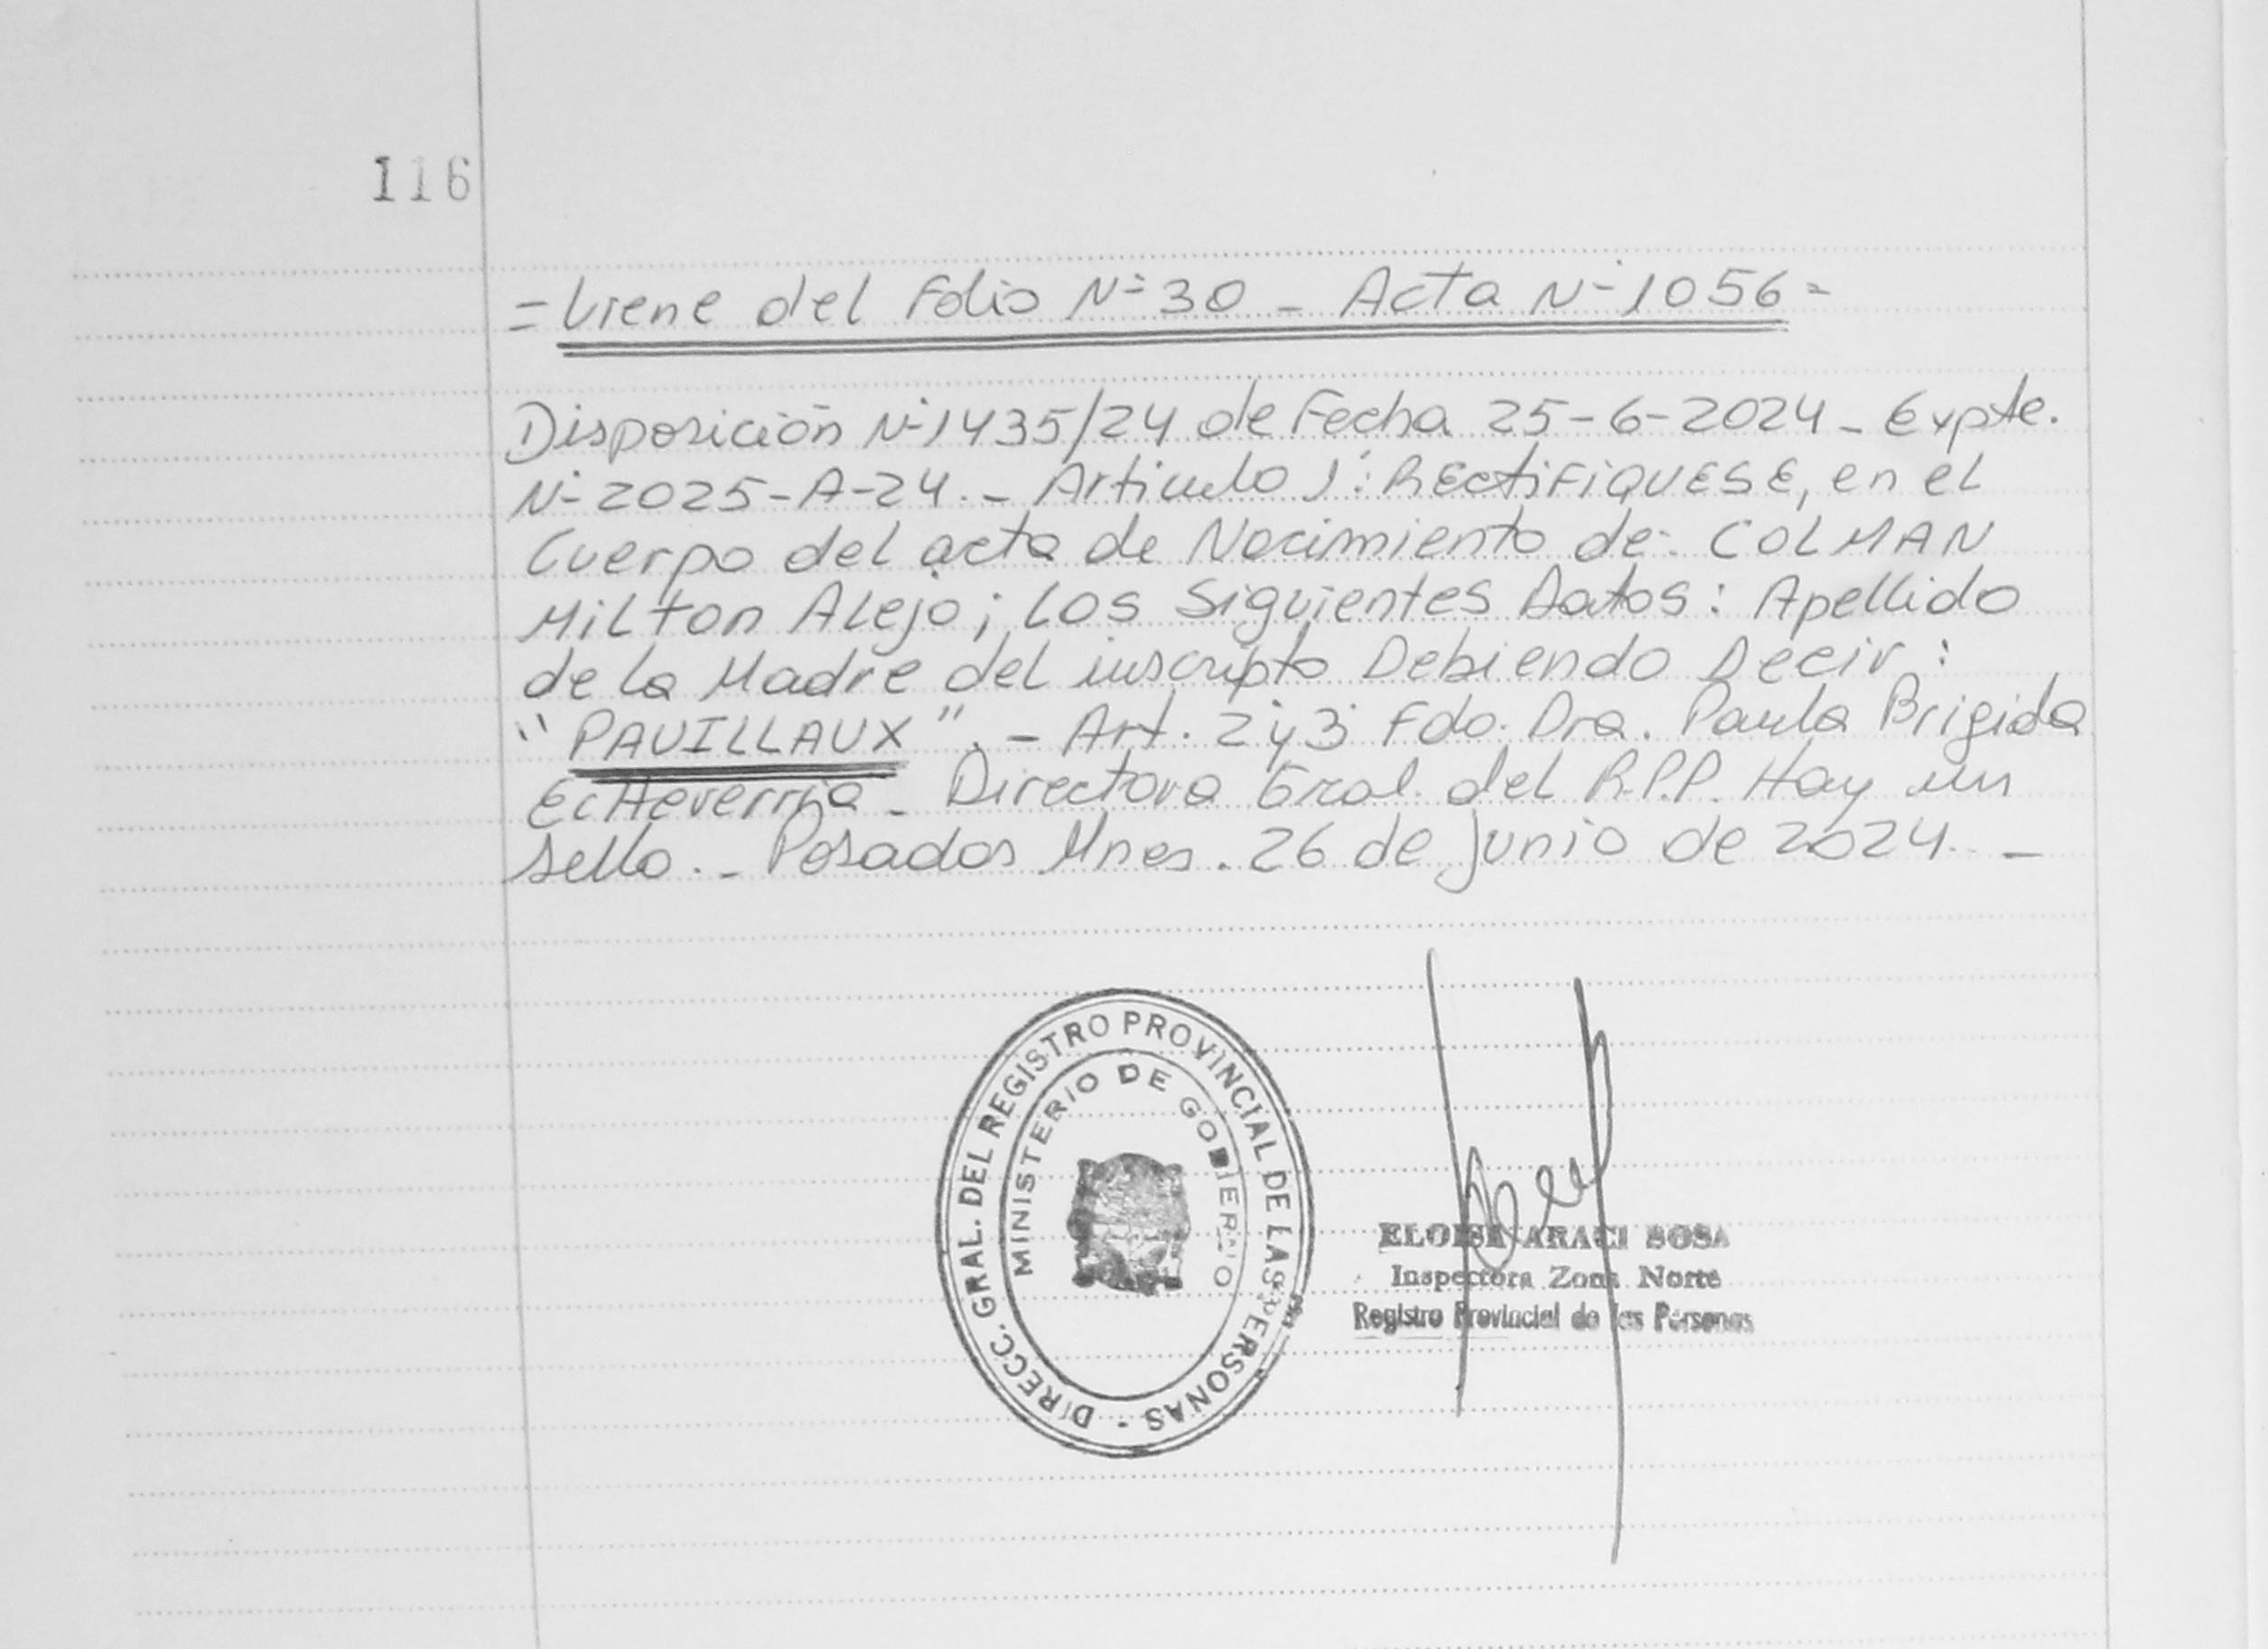 116
= Viene del Folio Nº 30 - Acta Nº 1056 =
Disposición Nº 1435/24 de Fecha 25-6-2024 - Expte.
Nº 2025-A-24. - Articulo 1º: RECtiFiQUESE, en el
Cuerpo del acta de Nacimiento de: COLMAN
Milton Alejo; los Siguientes Datos: Apellido
de la Madre del inscripto Debiendo Decir:
"PAUILLAUX". - Art. 2º y 3º Fdo. Dra. Paula Brigida
Echeverria - Directora Gral. del R.P.P. Hay un
sello. - Posadas Mnes. 26 de junio de 2024. -
DIRECC. GRAL. DEL REGISTRO PROVINCIAL DE LAS PERSONAS -
MINISTERIO DE GOBIERNO
ELOISA ARACI SOSA
Inspectora Zona Norte
Registro Provincial de las Personas